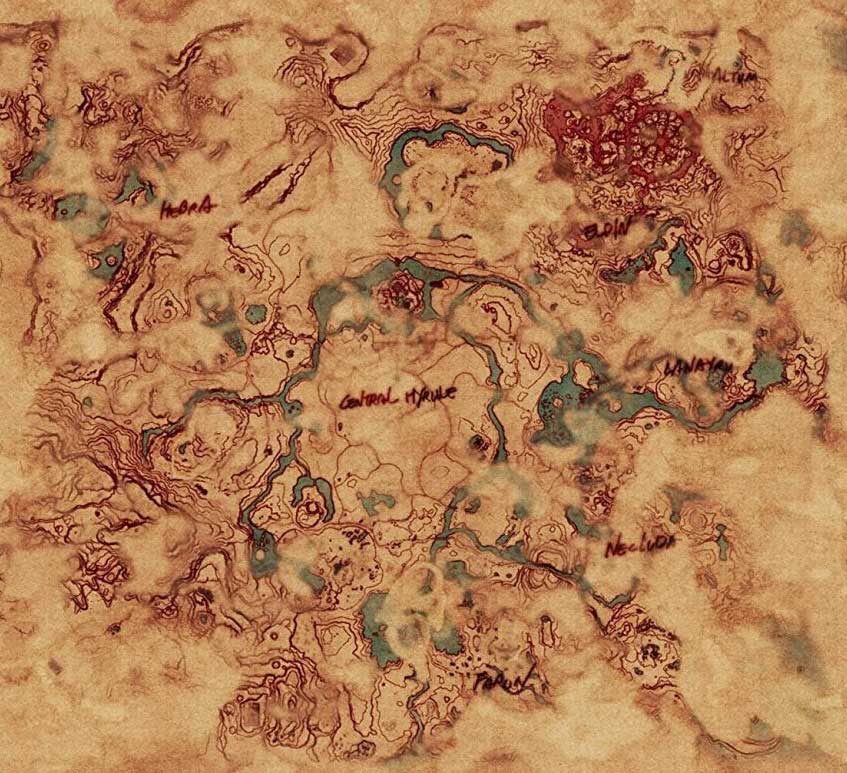 ALTUM
HEBRA
ELDIN
LANAYRU
CENTRAL HYRULE
NECLUDA
FARON